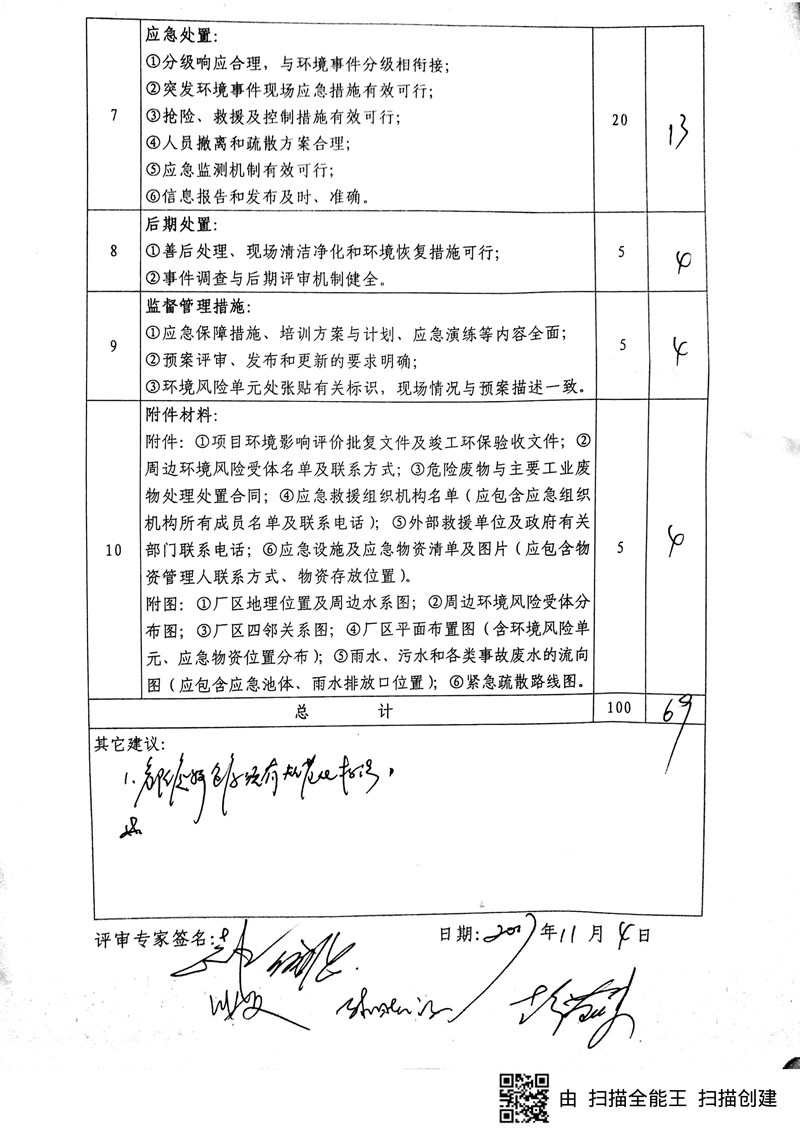 应急处置：
①分级响应合理，与环境事件分级相衔接；
②突发环境事件现场应急措施有效可行；
7 ③抢险、救援及控制措施有效可行； 20 13
④人员撤离和疏散方案合理；
⑤应急监测机制有效可行；
⑥信息报告和发布及时、准确。
后期处置：
8 ①善后处理、现场清洁净化和环境恢复措施可行； 5 4
②事件调查与后期评审机制健全。
监督管理措施：
①应急保障措施、培训方案与计划、应急演练等内容全面；
9 ②预案评审、发布和更新的要求明确； 5 4
③环境风险单元处张贴有关标识，现场情况与预案描述一致。
附件材料：
附件：①项目环境影响评价批复文件及竣工环保验收文件；②
周边环境风险受体名单及联系方式；③危险废物与主要工业废
物处理处置合同；④应急救援组织机构名单（应包含应急组织
机构所有成员名单及联系电话）；⑤外部救援单位及政府有关
10 部门联系电话；⑥应急设施及应急物资清单及图片（应包含物 5 4
资管理人联系方式、物资存放位置）。
附图：①厂区地理位置及周边水系图；②周边环境风险受体分
布图；③厂区四邻关系图；④厂区平面布置图（含环境风险单
元、应急物资位置分布）；⑤雨水、污水和各类事故废水的流向
图（应包含应急池体、雨水排放口位置）；⑥紧急疏散路线图。
总 计 100 69
其它建议：
1.
评审专家签名： 日期：2017年11月4日
由 扫描全能王 扫描创建